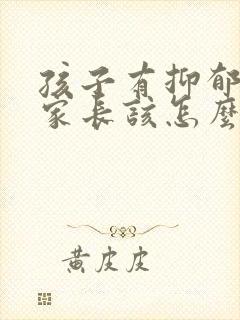 孩子有抑郁
家长该怎麽
黄皮皮